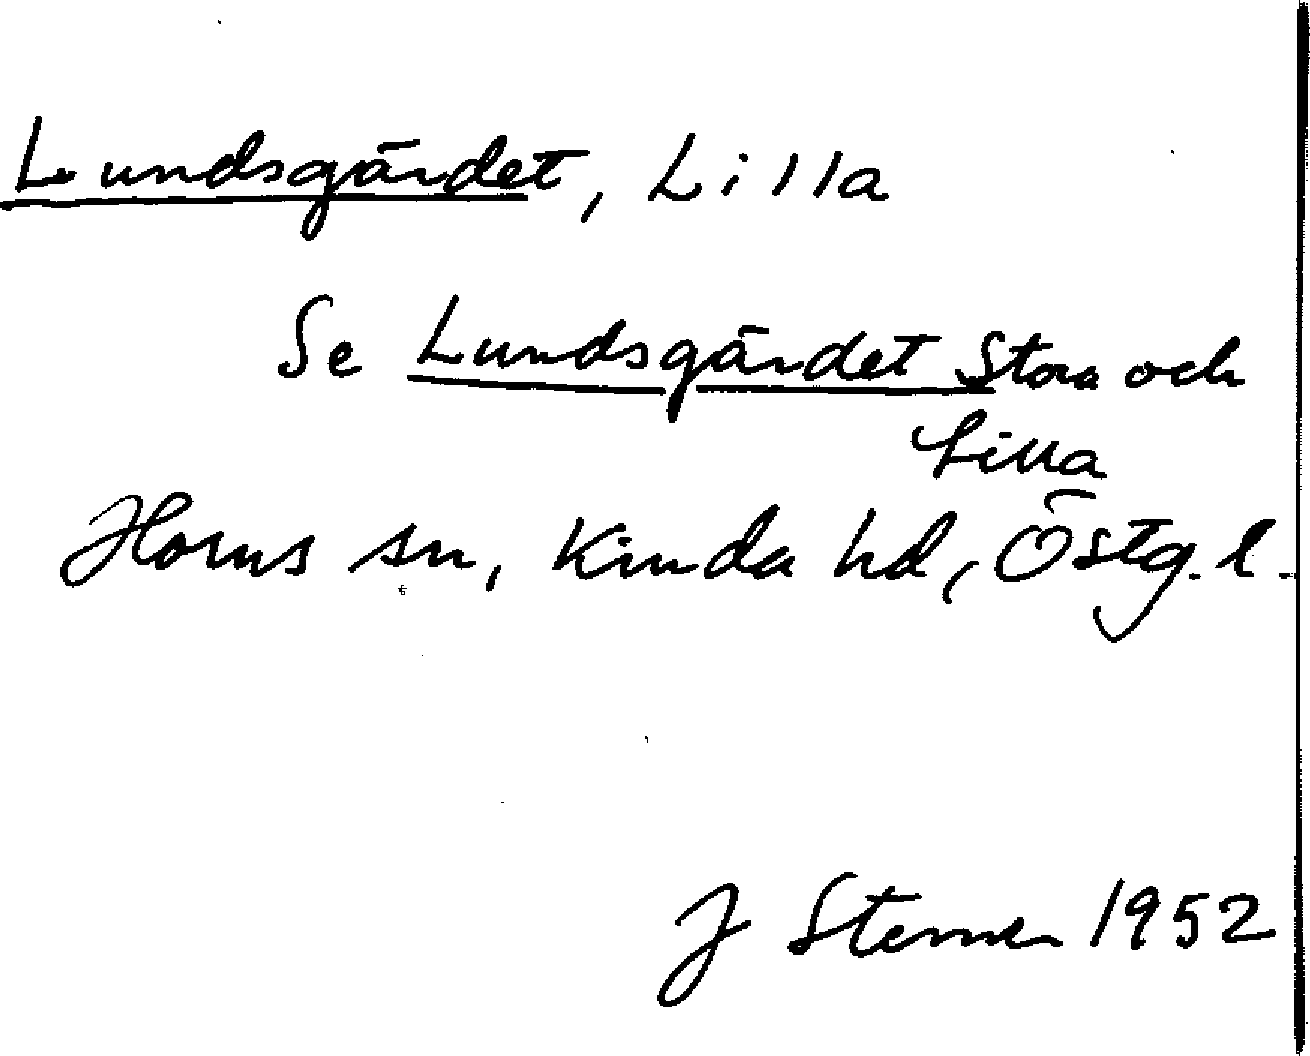 Lundsgärdet, Lilla
Se Lundsgärdet Stora och
Lilla
Horns sn, Kinda hd, Östg. l.
J Sterner 1952